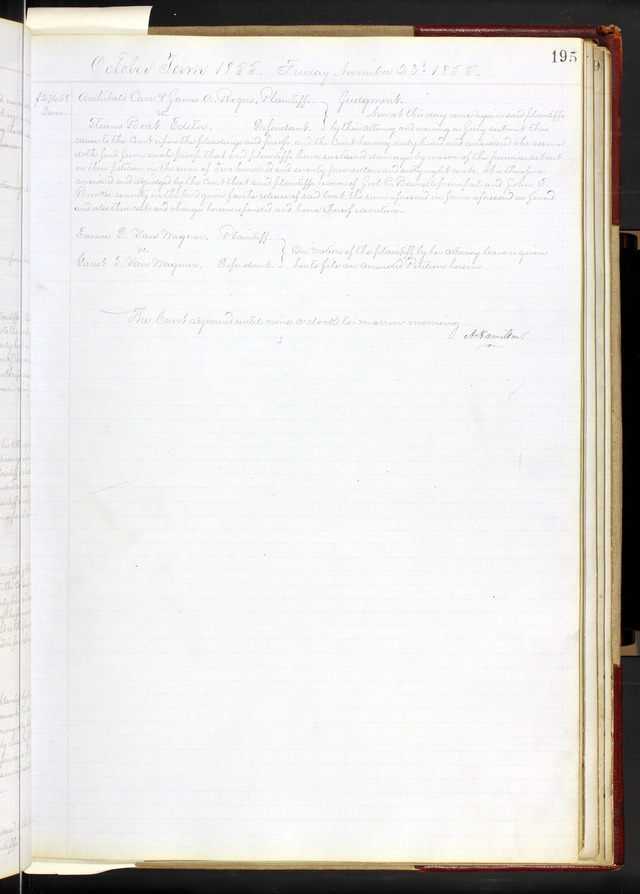 195
October Term 1855. Friday November 23d 1855.
$274.68 Archibald Carr & James A. Rogers, Plaintiffs Judgment.
Dam. vs. Now at this day come again said plaintiffs
Steam Boat Editor. Defendant. by their attorney and waiving a Jury submit this
cause to the Court upon the pleadings and proofs and the Court having duly heard and considered the same
doth find from such proof that said plaintiffs have sustained damage by reason of the premises set out
in their petition in the sum of Two hundred and seventy four dollars and sixty eight cents. It is therefore
considered and adjudged by the Court that said plaintiffs recover of Joel R. Bennett principal and John O.
security in the bond given for the release of said boat, the sum aforesaid in form aforesaid so found
and also their costs and charges herein expended and have thereof execution.
Eunice D. Van Wagner, Plaintiff
vs. On motion of the plaintiff by her attorney leave is given
Garret T. Van Wagner, Defendant. her to file an amended Petition herein
The Court adjourned until nine o'clock to-morrow morning
A. Hamilton